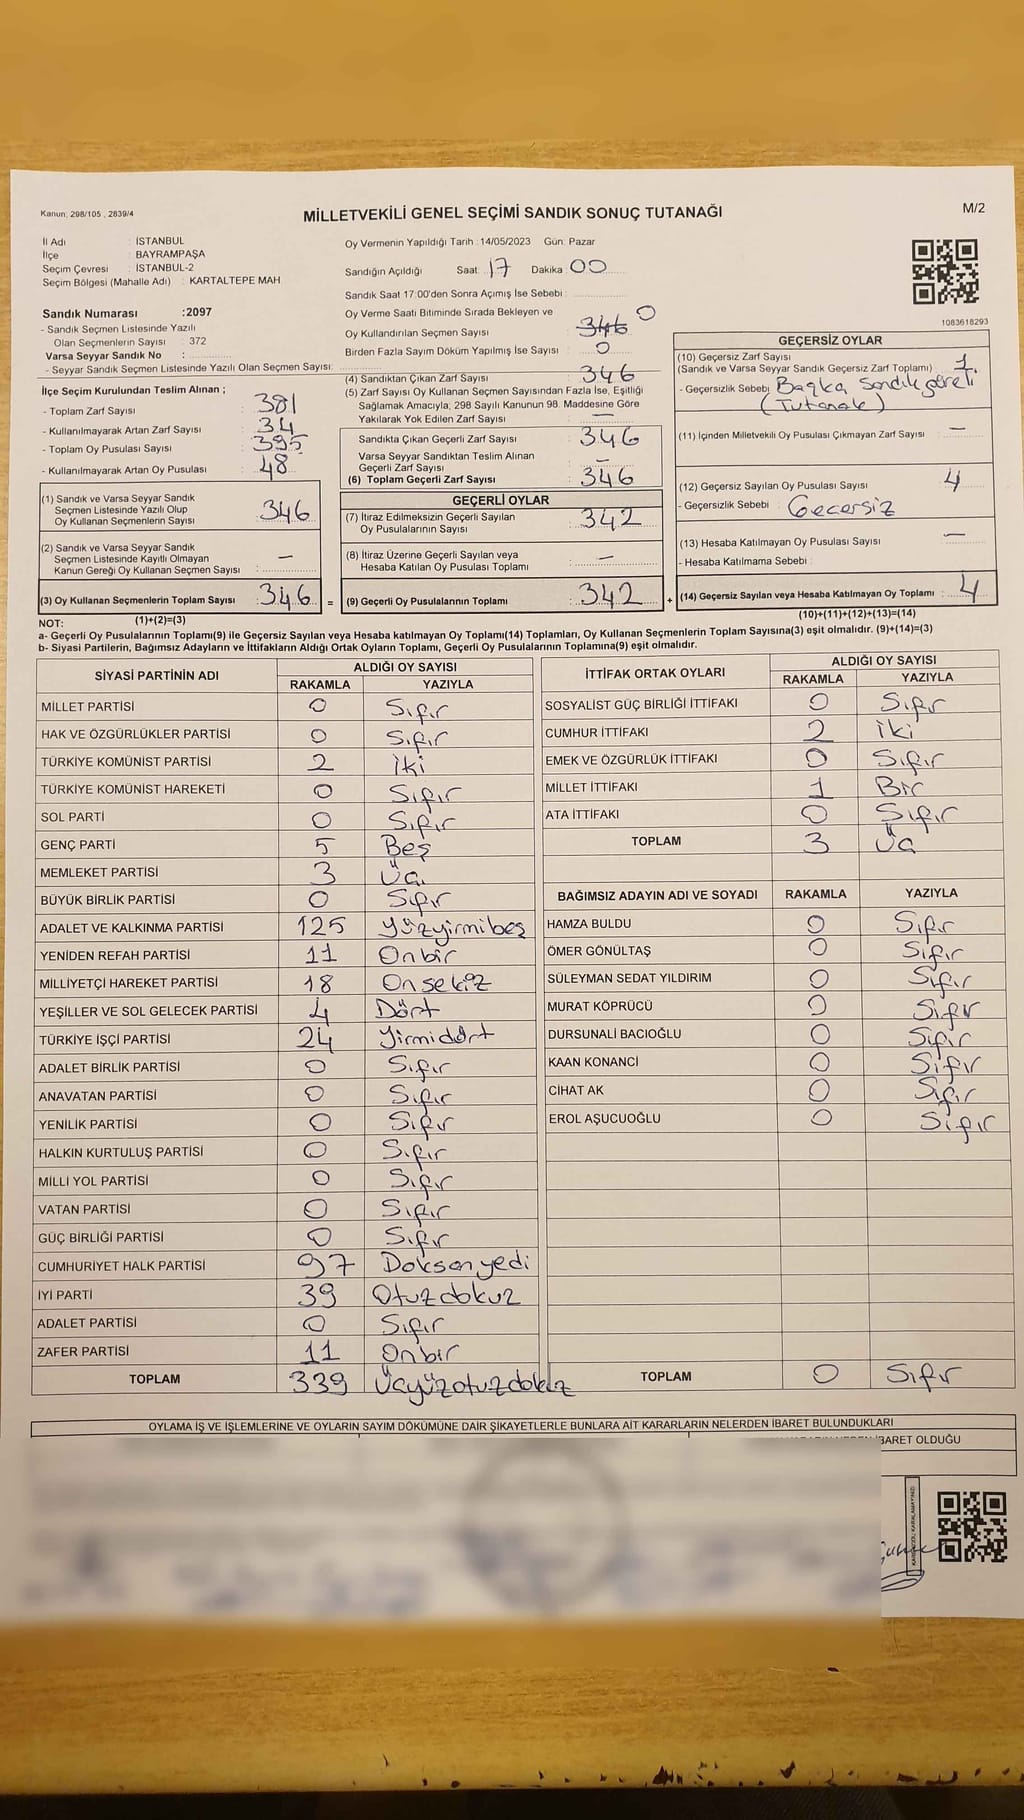 Kanun; 298/105 , 2839/4
MİLLETVEKİLİ GENEL SEÇİMİ SANDIK SONUÇ TUTANAĞI
M/2
İl Adı : İSTANBUL
İlçe : BAYRAMPAŞA
Seçim Çevresi : İSTANBUL-2
Seçim Bölgesi (Mahalle Adı) : KARTALTEPE MAH
Sandık Numarası :2097
- Sandık Seçmen Listesinde Yazılı
Olan Seçmenlerin Sayısı : 372
Varsa Seyyar Sandık No :
- Seyyar Sandık Seçmen Listesinde Yazılı Olan Seçmen Sayısı:
Oy Vermenin Yapıldığı Tarih : 14/05/2023 Gün: Pazar
Sandığın Açıldığı Saat 17 Dakika 00
Sandık Saat 17:00'den Sonra Açımış İse Sebebi :
Oy Verme Saati Bitiminde Sırada Bekleyen ve
Oy Kullandırılan Seçmen Sayısı : 346 0
Birden Fazla Sayım Döküm Yapılmış İse Sayısı : 0
1083618293
İlçe Seçim Kurulundan Teslim Alınan ;
- Toplam Zarf Sayısı : 381
- Kullanılmayarak Artan Zarf Sayısı : 34
- Toplam Oy Pusulası Sayısı : 395
- Kullanılmayarak Artan Oy Pusulası : 48
(1) Sandık ve Varsa Seyyar Sandık
Seçmen Listesinde Yazılı Olup
Oy Kullanan Seçmenlerin Sayısı : 346
(2) Sandık ve Varsa Seyyar Sandık
Seçmen Listesinde Kayıtlı Olmayan
Kanun Gereği Oy Kullanan Seçmen Sayısı : -
(3) Oy Kullanan Seçmenlerin Toplam Sayısı : 346 =
(4) Sandıktan Çıkan Zarf Sayısı : 346
(5) Zarf Sayısı Oy Kullanan Seçmen Sayısından Fazla İse, Eşitliği
Sağlamak Amacıyla, 298 Sayılı Kanunun 98. Maddesine Göre
Yakılarak Yok Edilen Zarf Sayısı : -
Sandıkta Çıkan Geçerli Zarf Sayısı : 346
Varsa Seyyar Sandıktan Teslim Alınan
Geçerli Zarf Sayısı : -
(6) Toplam Geçerli Zarf Sayısı : 346
GEÇERLİ OYLAR
(7) İtiraz Edilmeksizin Geçerli Sayılan
Oy Pusulalarının Sayısı : 342
(8) İtiraz Üzerine Geçerli Sayılan veya
Hesaba Katılan Oy Pusulası Toplamı : -
(9) Geçerli Oy Pusulalarının Toplamı : 342 +
GEÇERSİZ OYLAR
(10) Geçersiz Zarf Sayısı
(Sandık ve Varsa Seyyar Sandık Geçersiz Zarf Toplamı) : 1
- Geçersizlik Sebebi : Başka Sandık
(Tutanak)
(11) İçinden Milletvekili Oy Pusulası Çıkmayan Zarf Sayısı : -
(12) Geçersiz Sayılan Oy Pusulası Sayısı : 4
- Geçersizlik Sebebi : Gecersiz
(13) Hesaba Katılmayan Oy Pusulası Sayısı : -
- Hesaba Katılmama Sebebi :
(14) Geçersiz Sayılan veya Hesaba Katılmayan Oy Toplamı : 4
NOT: (1)+(2)=(3) (10)+(11)+(12)+(13)=(14)
a- Geçerli Oy Pusulalarının Toplamı(9) ile Geçersiz Sayılan veya Hesaba katılmayan Oy Toplamı(14) Toplamları, Oy Kullanan Seçmenlerin Toplam Sayısına(3) eşit olmalıdır. (9)+(14)=(3)
b- Siyasi Partilerin, Bağımsız Adayların ve İttifakların Aldığı Ortak Oyların Toplamı, Geçerli Oy Pusulalarının Toplamına(9) eşit olmalıdır.
SİYASİ PARTİNİN ADI ALDIĞI OY SAYISI
RAKAMLA YAZIYLA
MİLLET PARTİSİ 0 Sıfır
HAK VE ÖZGÜRLÜKLER PARTİSİ 0 Sıfır
TÜRKİYE KOMÜNİST PARTİSİ 2 İki
TÜRKİYE KOMÜNİST HAREKETİ 0 Sıfır
SOL PARTİ 0 Sıfır
GENÇ PARTİ 5 Beş
MEMLEKET PARTİSİ 3 Üç
BÜYÜK BİRLİK PARTİSİ 0 Sıfır
ADALET VE KALKINMA PARTİSİ 125 Yüzyirmibeş
YENİDEN REFAH PARTİSİ 11 Onbir
MİLLİYETÇİ HAREKET PARTİSİ 18 Onsekiz
YEŞİLLER VE SOL GELECEK PARTİSİ 4 Dört
TÜRKİYE İŞÇİ PARTİSİ 24 Yirmidört
ADALET BİRLİK PARTİSİ 0 Sıfır
ANAVATAN PARTİSİ 0 Sıfır
YENİLİK PARTİSİ 0 Sıfır
HALKIN KURTULUŞ PARTİSİ 0 Sıfır
MİLLİ YOL PARTİSİ 0 Sıfır
VATAN PARTİSİ 0 Sıfır
GÜÇ BİRLİĞİ PARTİSİ 0 Sıfır
CUMHURİYET HALK PARTİSİ 97 Doksanyedi
İYİ PARTİ 39 Otuzdokuz
ADALET PARTİSİ 0 Sıfır
ZAFER PARTİSİ 11 Onbir
TOPLAM 339 Üçyüzotuzdokuz
İTTİFAK ORTAK OYLARI ALDIĞI OY SAYISI
RAKAMLA YAZIYLA
SOSYALİST GÜÇ BİRLİĞİ İTTİFAKI 0 Sıfır
CUMHUR İTTİFAKI 2 İki
EMEK VE ÖZGÜRLÜK İTTİFAKI 0 Sıfır
MİLLET İTTİFAKI 1 Bir
ATA İTTİFAKI 0 Sıfır
TOPLAM 3 Üç
BAĞIMSIZ ADAYIN ADI VE SOYADI RAKAMLA YAZIYLA
HAMZA BULDU 0 Sıfır
ÖMER GÖNÜLTAŞ 0 Sıfır
SÜLEYMAN SEDAT YILDIRIM 0 Sıfır
MURAT KÖPRÜCÜ 0 Sıfır
DURSUNALİ BACIOĞLU 0 Sıfır
KAAN KONANCİ 0 Sıfır
CİHAT AK 0 Sıfır
EROL AŞUCUOĞLU 0 Sıfır
TOPLAM 0 Sıfır
OYLAMA İŞ VE İŞLEMLERİNE VE OYLARIN SAYIM DÖKÜMÜNE DAİR ŞİKAYETLERLE BUNLARA AİT KARARLARIN NELERDEN İBARET BULUNDUKLARI
İBARET OLDUĞU